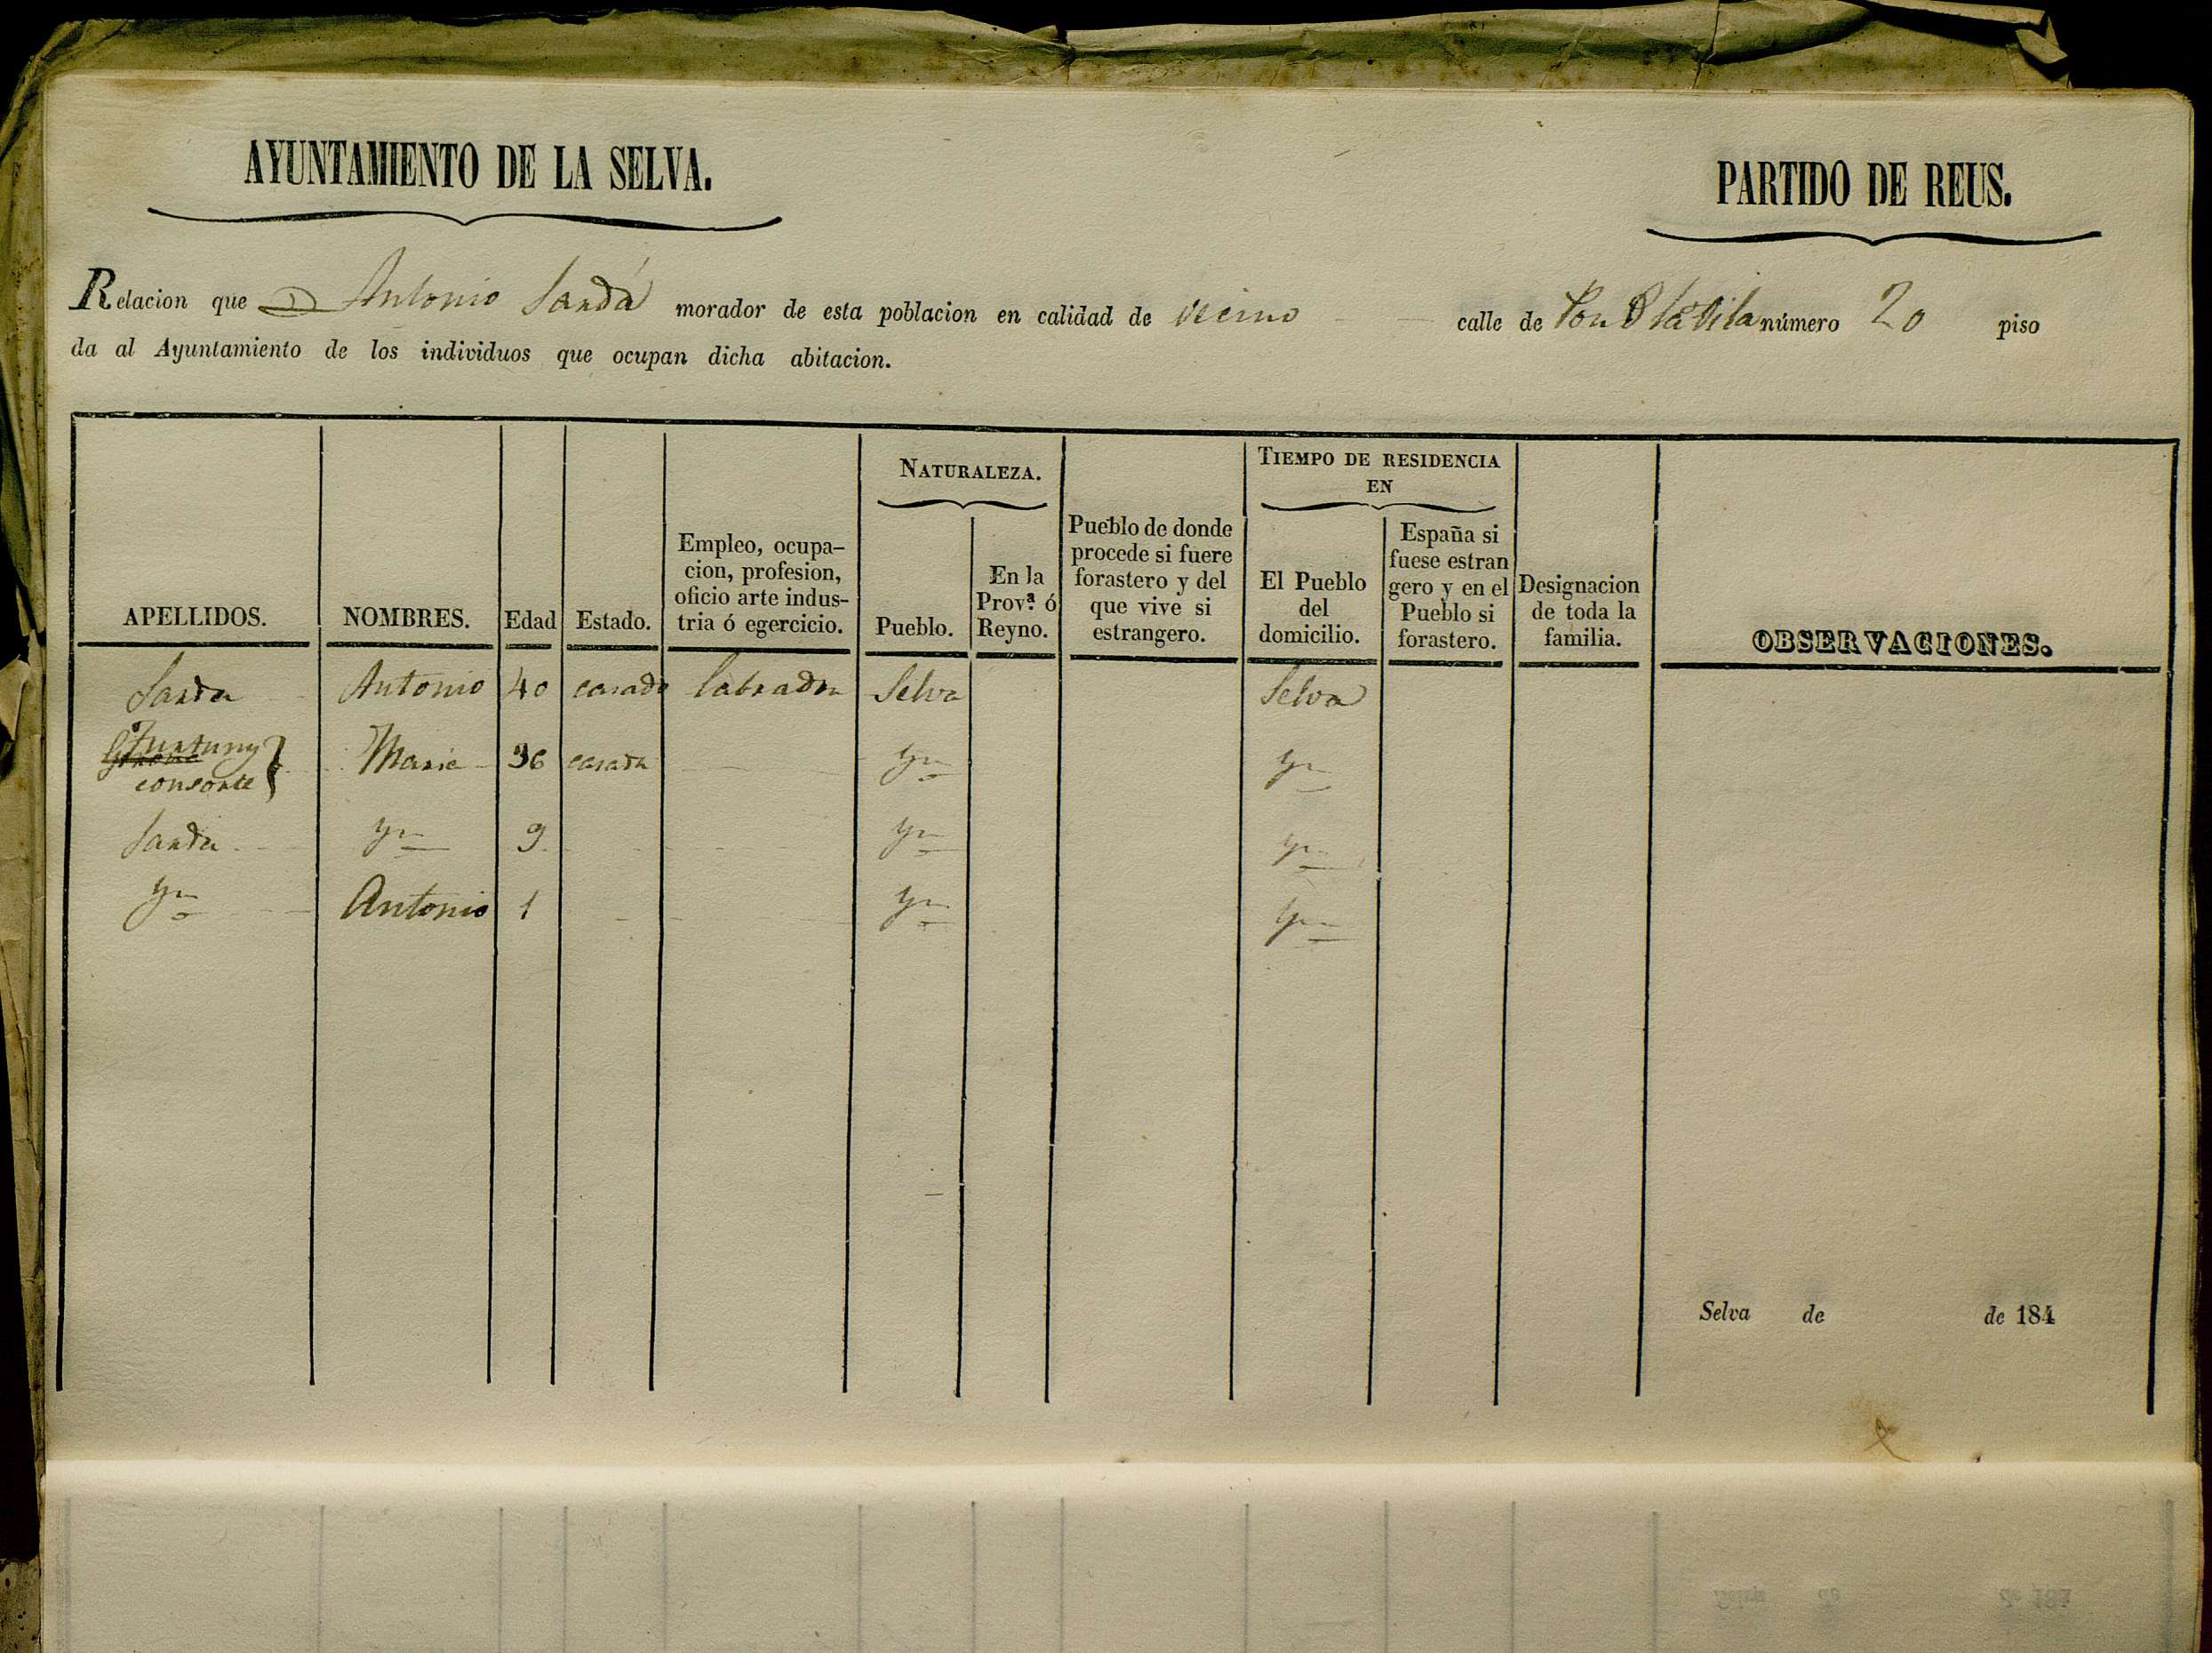 AYUNTAMIENTO DE LA SELVA.
PARTIDO DE REUS.
Relacion que D Antonio Sardá morador de esta poblacion en calidad de vecino calle de la Vila número 20 piso
da al Ayuntamiento de los individuos que ocupan dicha abitacion.
NATURALEZA.
TIEMPO DE RESIDENCIA
EN
APELLIDOS.
NOMBRES.
Edad
Estado.
Empleo, ocupa-
cion, profesion,
oficio arte indus-
tria ó egercicio.
Pueblo.
En la
Prov.ª ó
Reyno.
Pueblo de donde
procede si fuere
forastero y del
que vive si
estrangero.
El Pueblo
del
domicilio.
España si
fuese estran
gero y en el
Pueblo si
forastero.
Designacion
de toda la
familia.
OBSERVACIONES.
Sarda Antonio 40 casado labrador Selva Selva
consorte Maria 36 casada Ym Ym
Sarda Ym 9 Ym Ym
Ym Antonio 1 Ym Ym
Selva de de 184